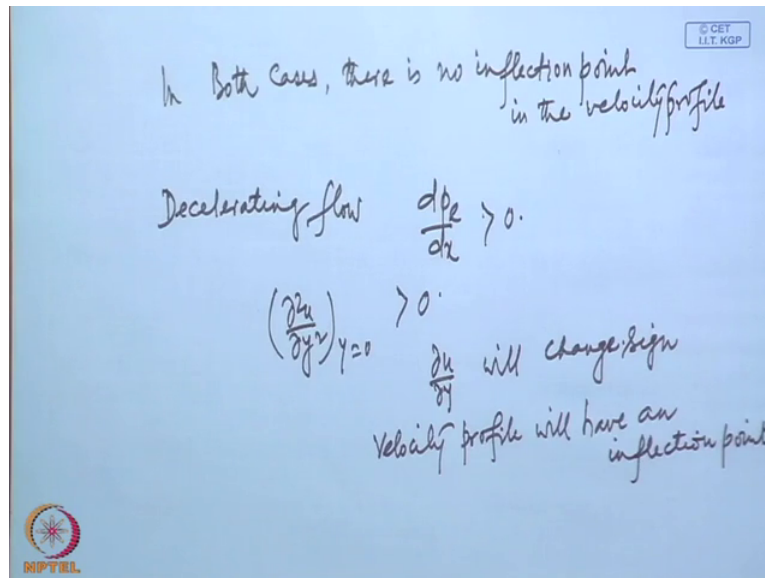 © CET
I.I.T. KGP
In Both Cases, there is no inflection point
in the velocity profile
Decelerating flow dpₑ/dx > 0.
(∂²u/∂y²)y=0 > 0.
∂u/∂y will change sign
Velocity profile will have an
inflection point
NPTEL